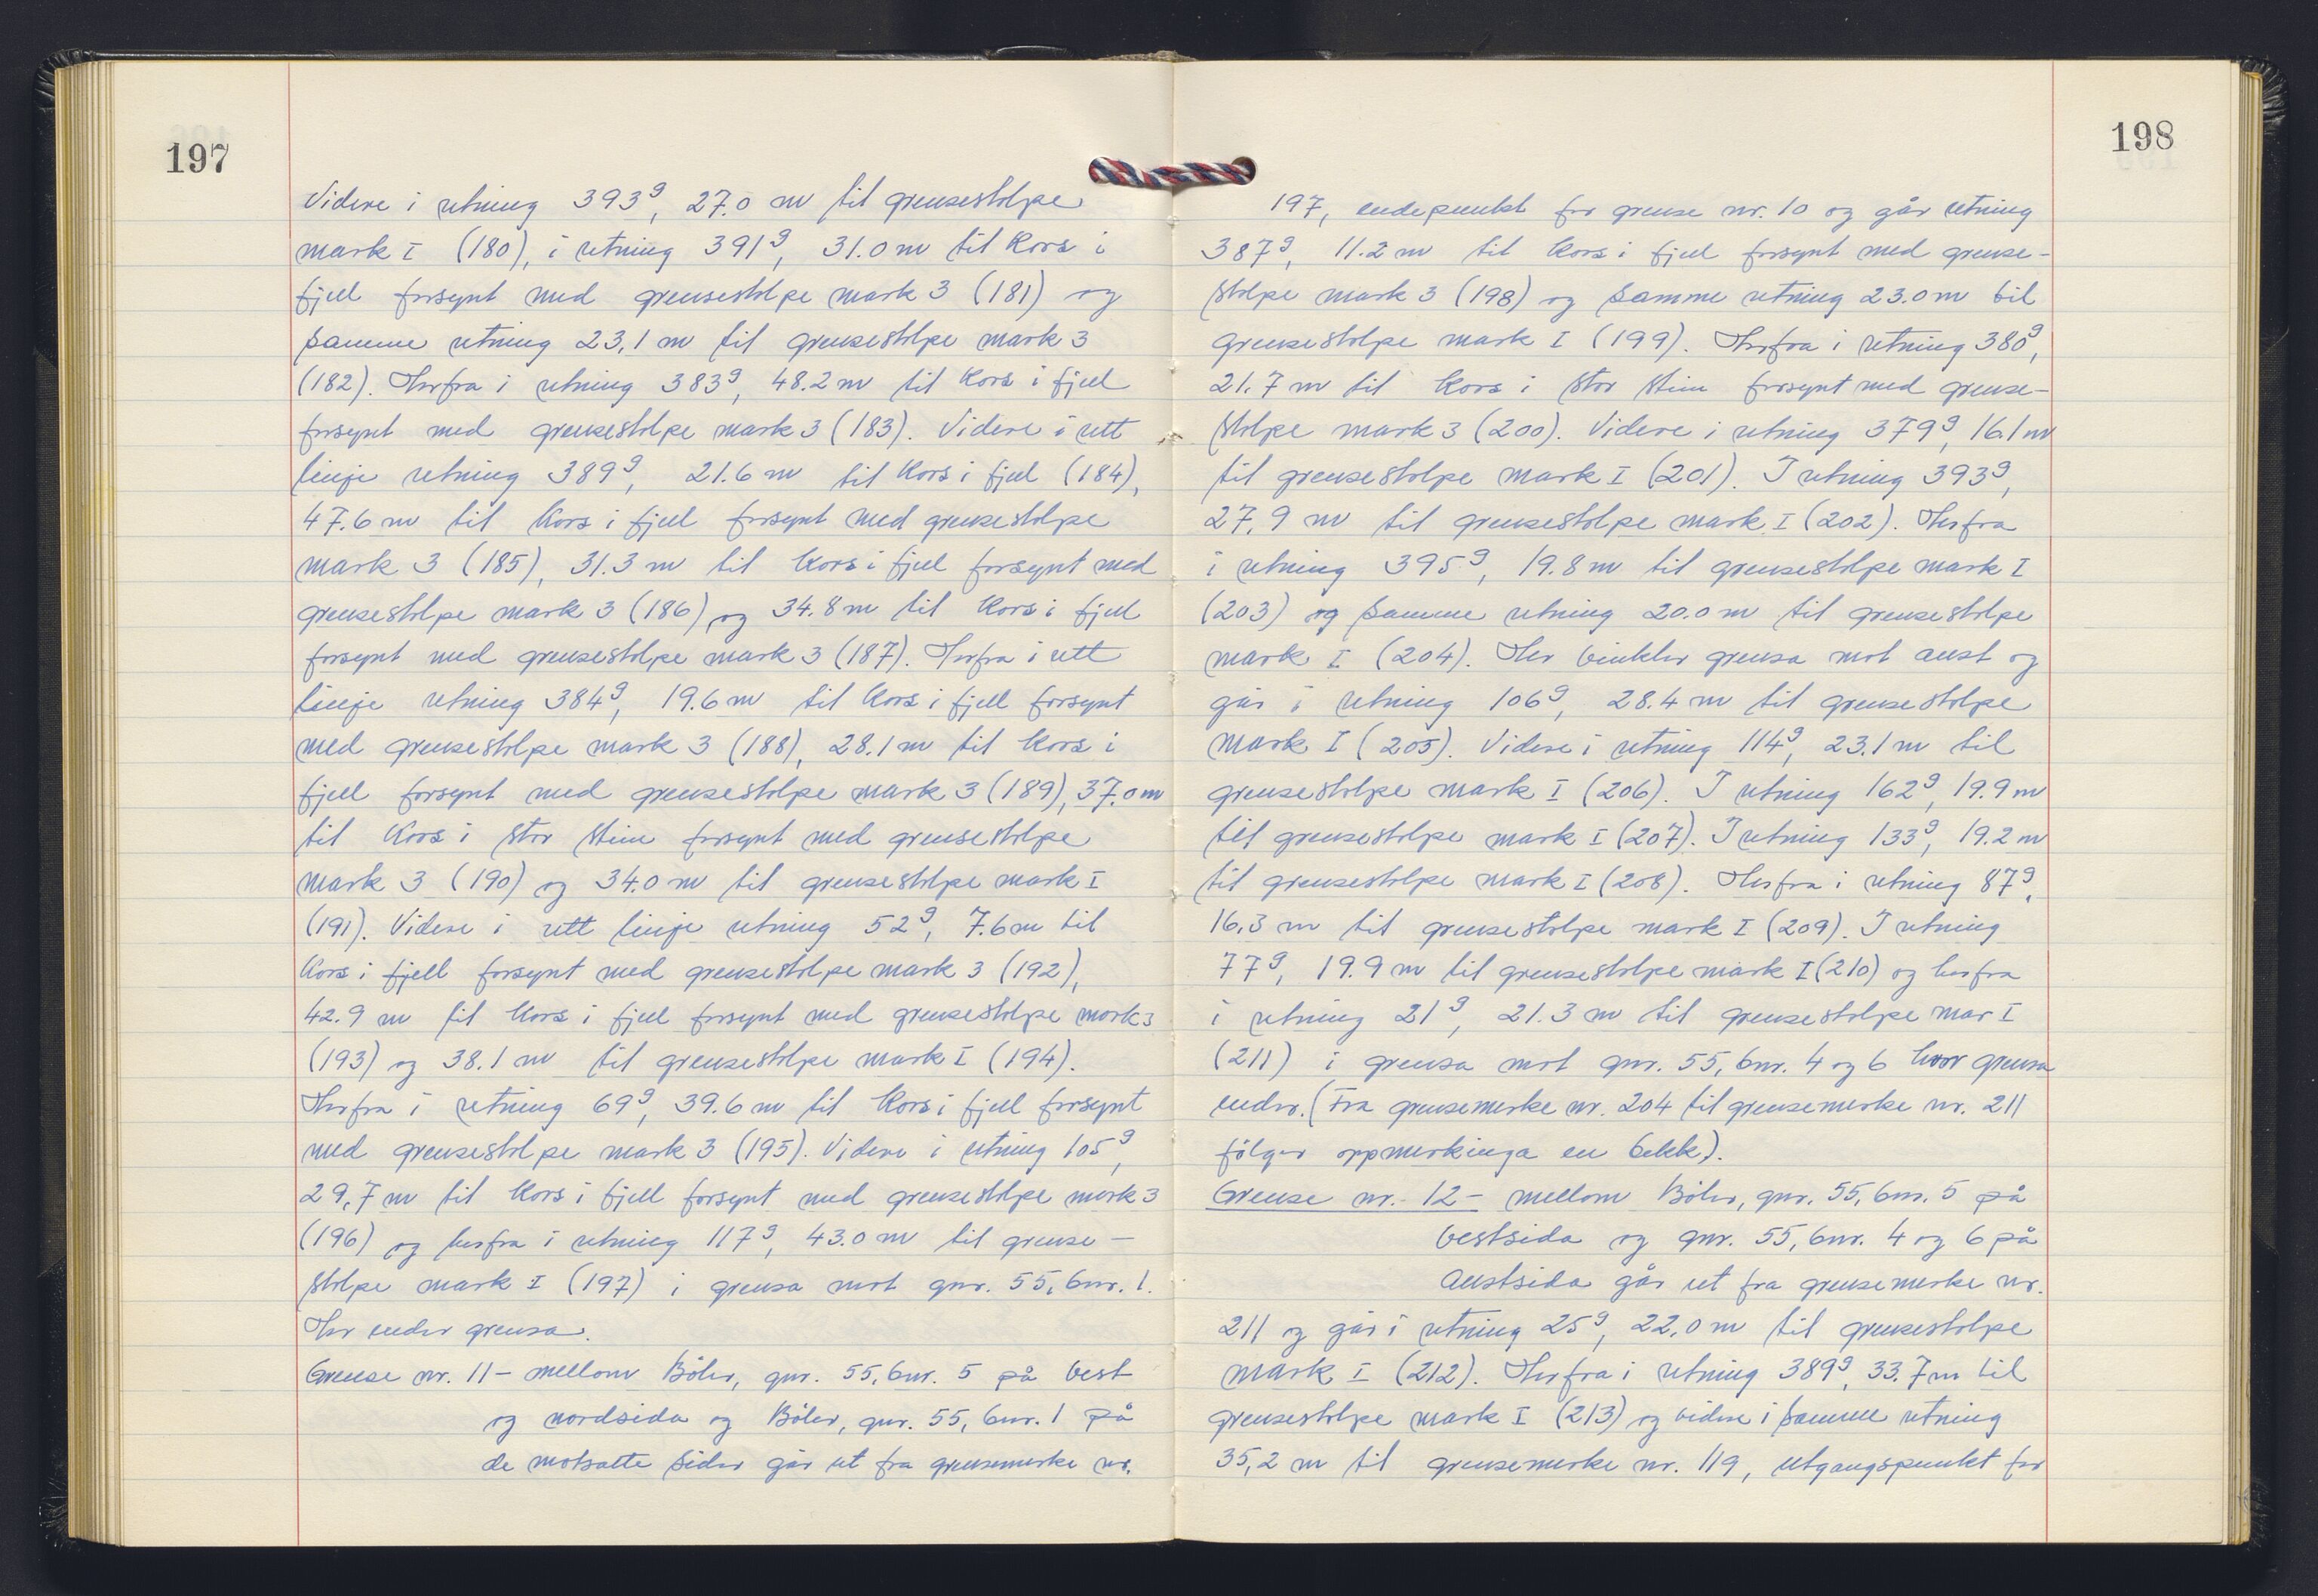 197
Videre i retning 393g, 27.0 m til grensestolpe
mark I (180), i retning 391g, 31.0 m til kors i
fjell forsynt med grensestolpe mark 3 (181) og
samme retning 23,1 m til grensestolpe mark 3
(182). Herfra i retning 383g, 48.2 m til kors i fjell
forsynt med grensestolpe mark 3 (183). Videre i rett
linje retning 389g, 21.6 m til kors i fjell (184),
47.6 m til kors i fjell forsynt med grensestolpe
mark 3 (185), 31.3 m til kors i fjell forsynt med
grensestolpe mark 3 (186) og 34.8 m til kors i fjell
forsynt med grensestolpe mark 3 (187). Herfra i rett
linje retning 384g, 19.6 m til kors i fjell forsynt
med grensestolpe mark 3 (188), 28.1 m til kors i
fjell forsynt med grensestolpe mark 3 (189), 37.0 m
til kors i stor stein forsynt med grensestolpe
mark 3 (190) og 34.0 m til grensestolpe mark I
(191). Videre i rett linje retning 52g, 7.6 m til
kors i fjell forsynt med grensestolpe mark 3 (192),
42.9 m til kors i fjell forsynt med grensestolpe mark 3
(193) og 38.1 m til grensestolpe mark I (194).
Herfra i retning 69g, 39.6 m til kors i fjell forsynt
med grensestolpe mark 3 (195). Videre i retning 105g,
29,7 m til kors i fjell forsynt med grensestolpe mark 3
(196) og herfra i retning 117g, 43.0 m til grense-
stolpe mark I (197) i grensa mot gnr. 55, bnr. 1.
Her ender grensa.
Grense nr. 11 - mellom Böler, gnr. 55, bnr. 5 på vest
og nordsida og Böler, gnr. 55, bnr. 1 på
de motsatte sider går ut fra grensemerke nr.
198
197, endepunkt for grense nr. 10 og går retning
387g, 11.2 m til kors i fjell forsynt med grense-
stolpe mark 3 (198) og samme retning 23.0 m til
grensestolpe mark I (199). Herfra i retning 380g,
21.7 m til kors i stor stein forsynt med grense-
stolpe mark 3 (200). Videre i retning 379g, 16.1 m
til grensestolpe mark I (201). I retning 393g,
27.9 m til grensestolpe mark I (202). Herfra
i retning 395g, 19.8 m til grensestolpe mark I
(203) og samme retning 20.0 m til grensestolpe
mark I (204). Her vinkler grensa mot aust og
går i retning 106g, 28.4 m til grensestolpe
mark I (205). Videre i retning 114g, 23.1 m til
grensestolpe mark I (206). I retning 162g, 19.9 m
til grensestolpe mark I (207). I retning 133g, 19.2 m
til grensestolpe mark I (208). Herfra i retning 87g,
16,3 m til grensestolpe mark I (209). I retning
77g, 19.9 m til grensestolpe mark I (210) og herfra
i retning 21g, 21.3 m til grensestolpe mar I
(211) i grensa mot gnr. 55, bnr. 4 og 6 hvor grensa
ender. (Fra grensemerke nr. 204 til grensemerke nr. 211
fölger oppmerkinga en bekk).
Grense nr. 12 - mellom Böler, gnr. 55, bnr. 5 på
vestsida og gnr. 55, bnr. 4 og 6 på
austsida går ut fra grensemerke nr.
211 og går i retning 25g, 22,0 m til grensestolpe
mark I (212). Herfra i retning 389g, 33.7 m til
grensestolpe mark I (213) og videre i samme retning
35,2 m til grensemerke nr. 119, utgangspunkt for